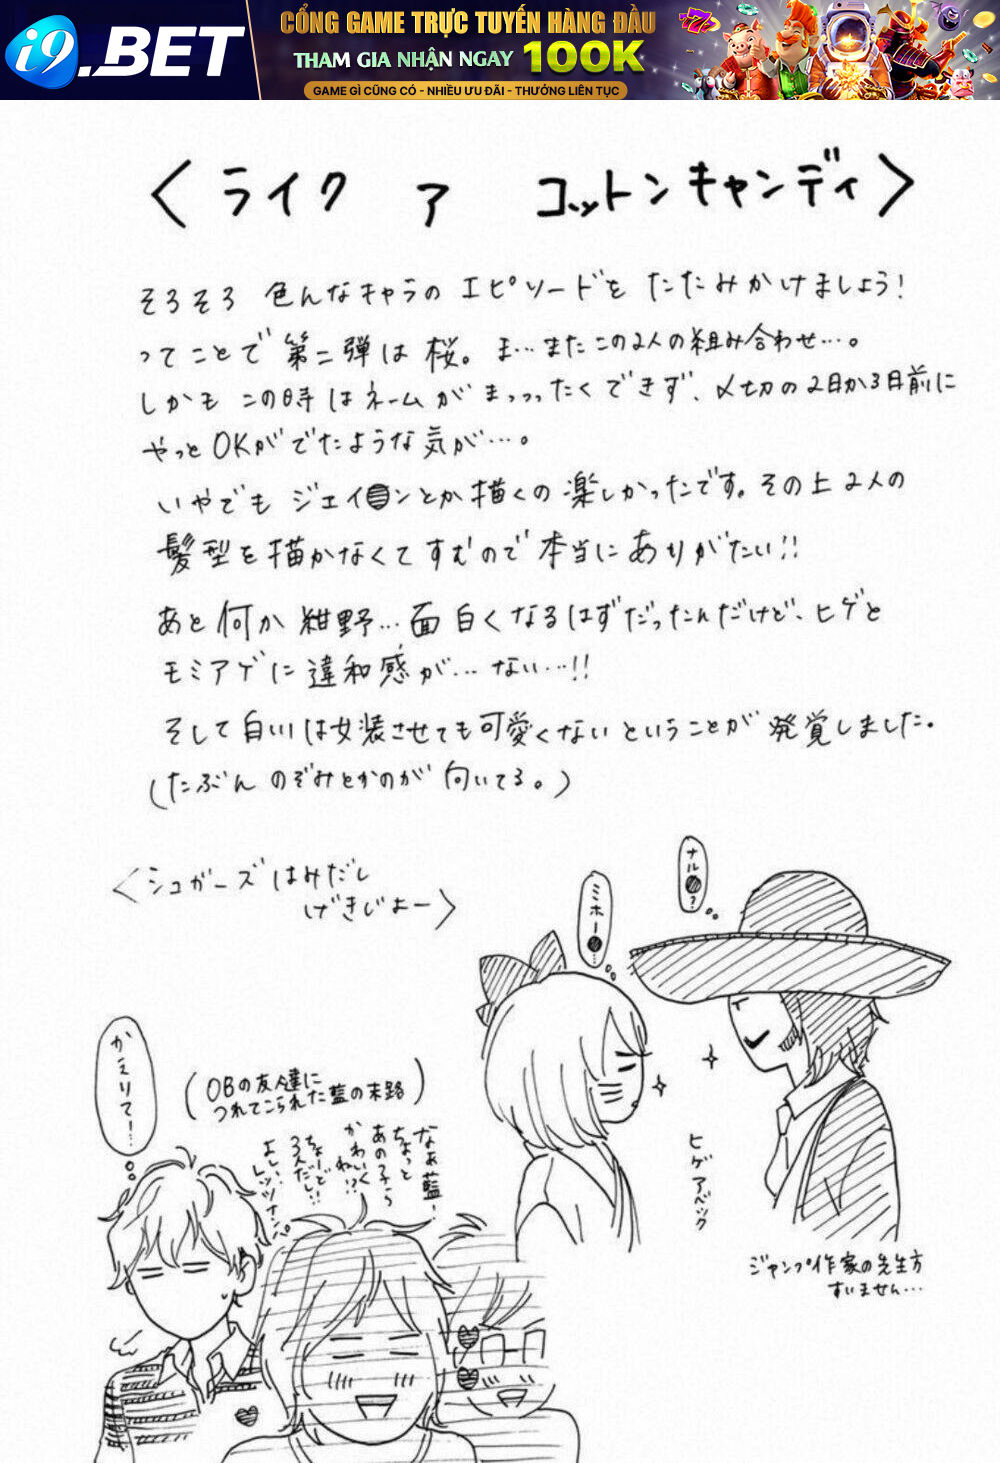 i9.BET
CỔNG GAME TRỰC TUYẾN HÀNG ĐẦU
THAM GIA NHẬN NGAY 100K
GAME GÌ CŨNG CÓ - NHIỀU ƯU ĐÃI - THƯỞNG LIÊN TỤC
<ライク ア コットンキャンディ>
そろそろ 色んなキャラの エピソードを たたみかけましょう!
ってことで 第二弾は 桜。ま…またこの2人の組み合わせ…。
しかも この時はネームがまっつったくできず、〆切の2日か3日前に
やっとOKがでたような気が…。
いやでも ジェイ●ンとか描くの楽しかったです。その上2人の
髪型を描かなくてすむので本当にありがたい!!
あと何か紺野…面白くなるはずだったんだけど、ヒゲと
モミアゲに違和感が…ない…!!
そして白川は女装させても可愛くないということが発覚しました。
(たぶん のぞみとかのが 向いてる。)
<シュガーズはみだし
げきじょー>
ナル●?
ミホー●…
かえりてー…
(OBの友人達に
つれてこられた藍の末路)
なぁ藍!
ちょっと
あの子ら
かわいく
ね!?
ちょーど
3人だし!!
よしレッツナンパ
ヒゲアベック
ジャンプ作家の先生方
すいません…